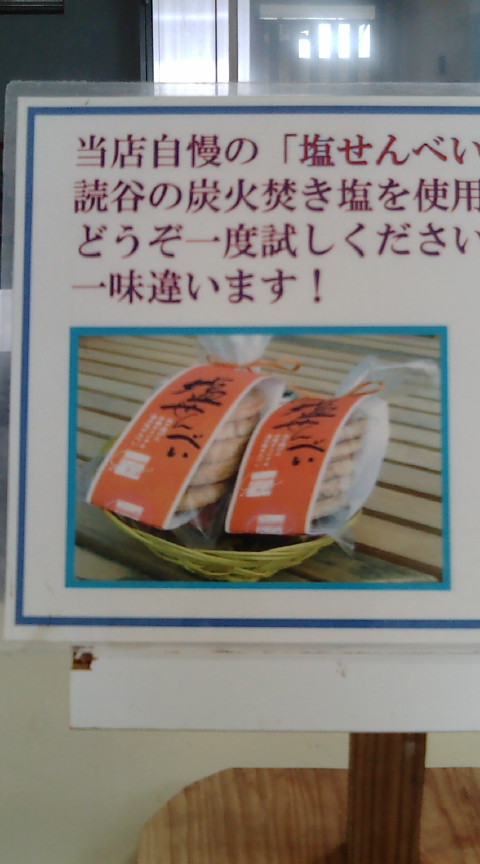 当店自慢の「塩せんべい
読谷の炭火焚き塩を使用
どうぞ一度試しください
一味違います！
塩せんべい
塩せんべい